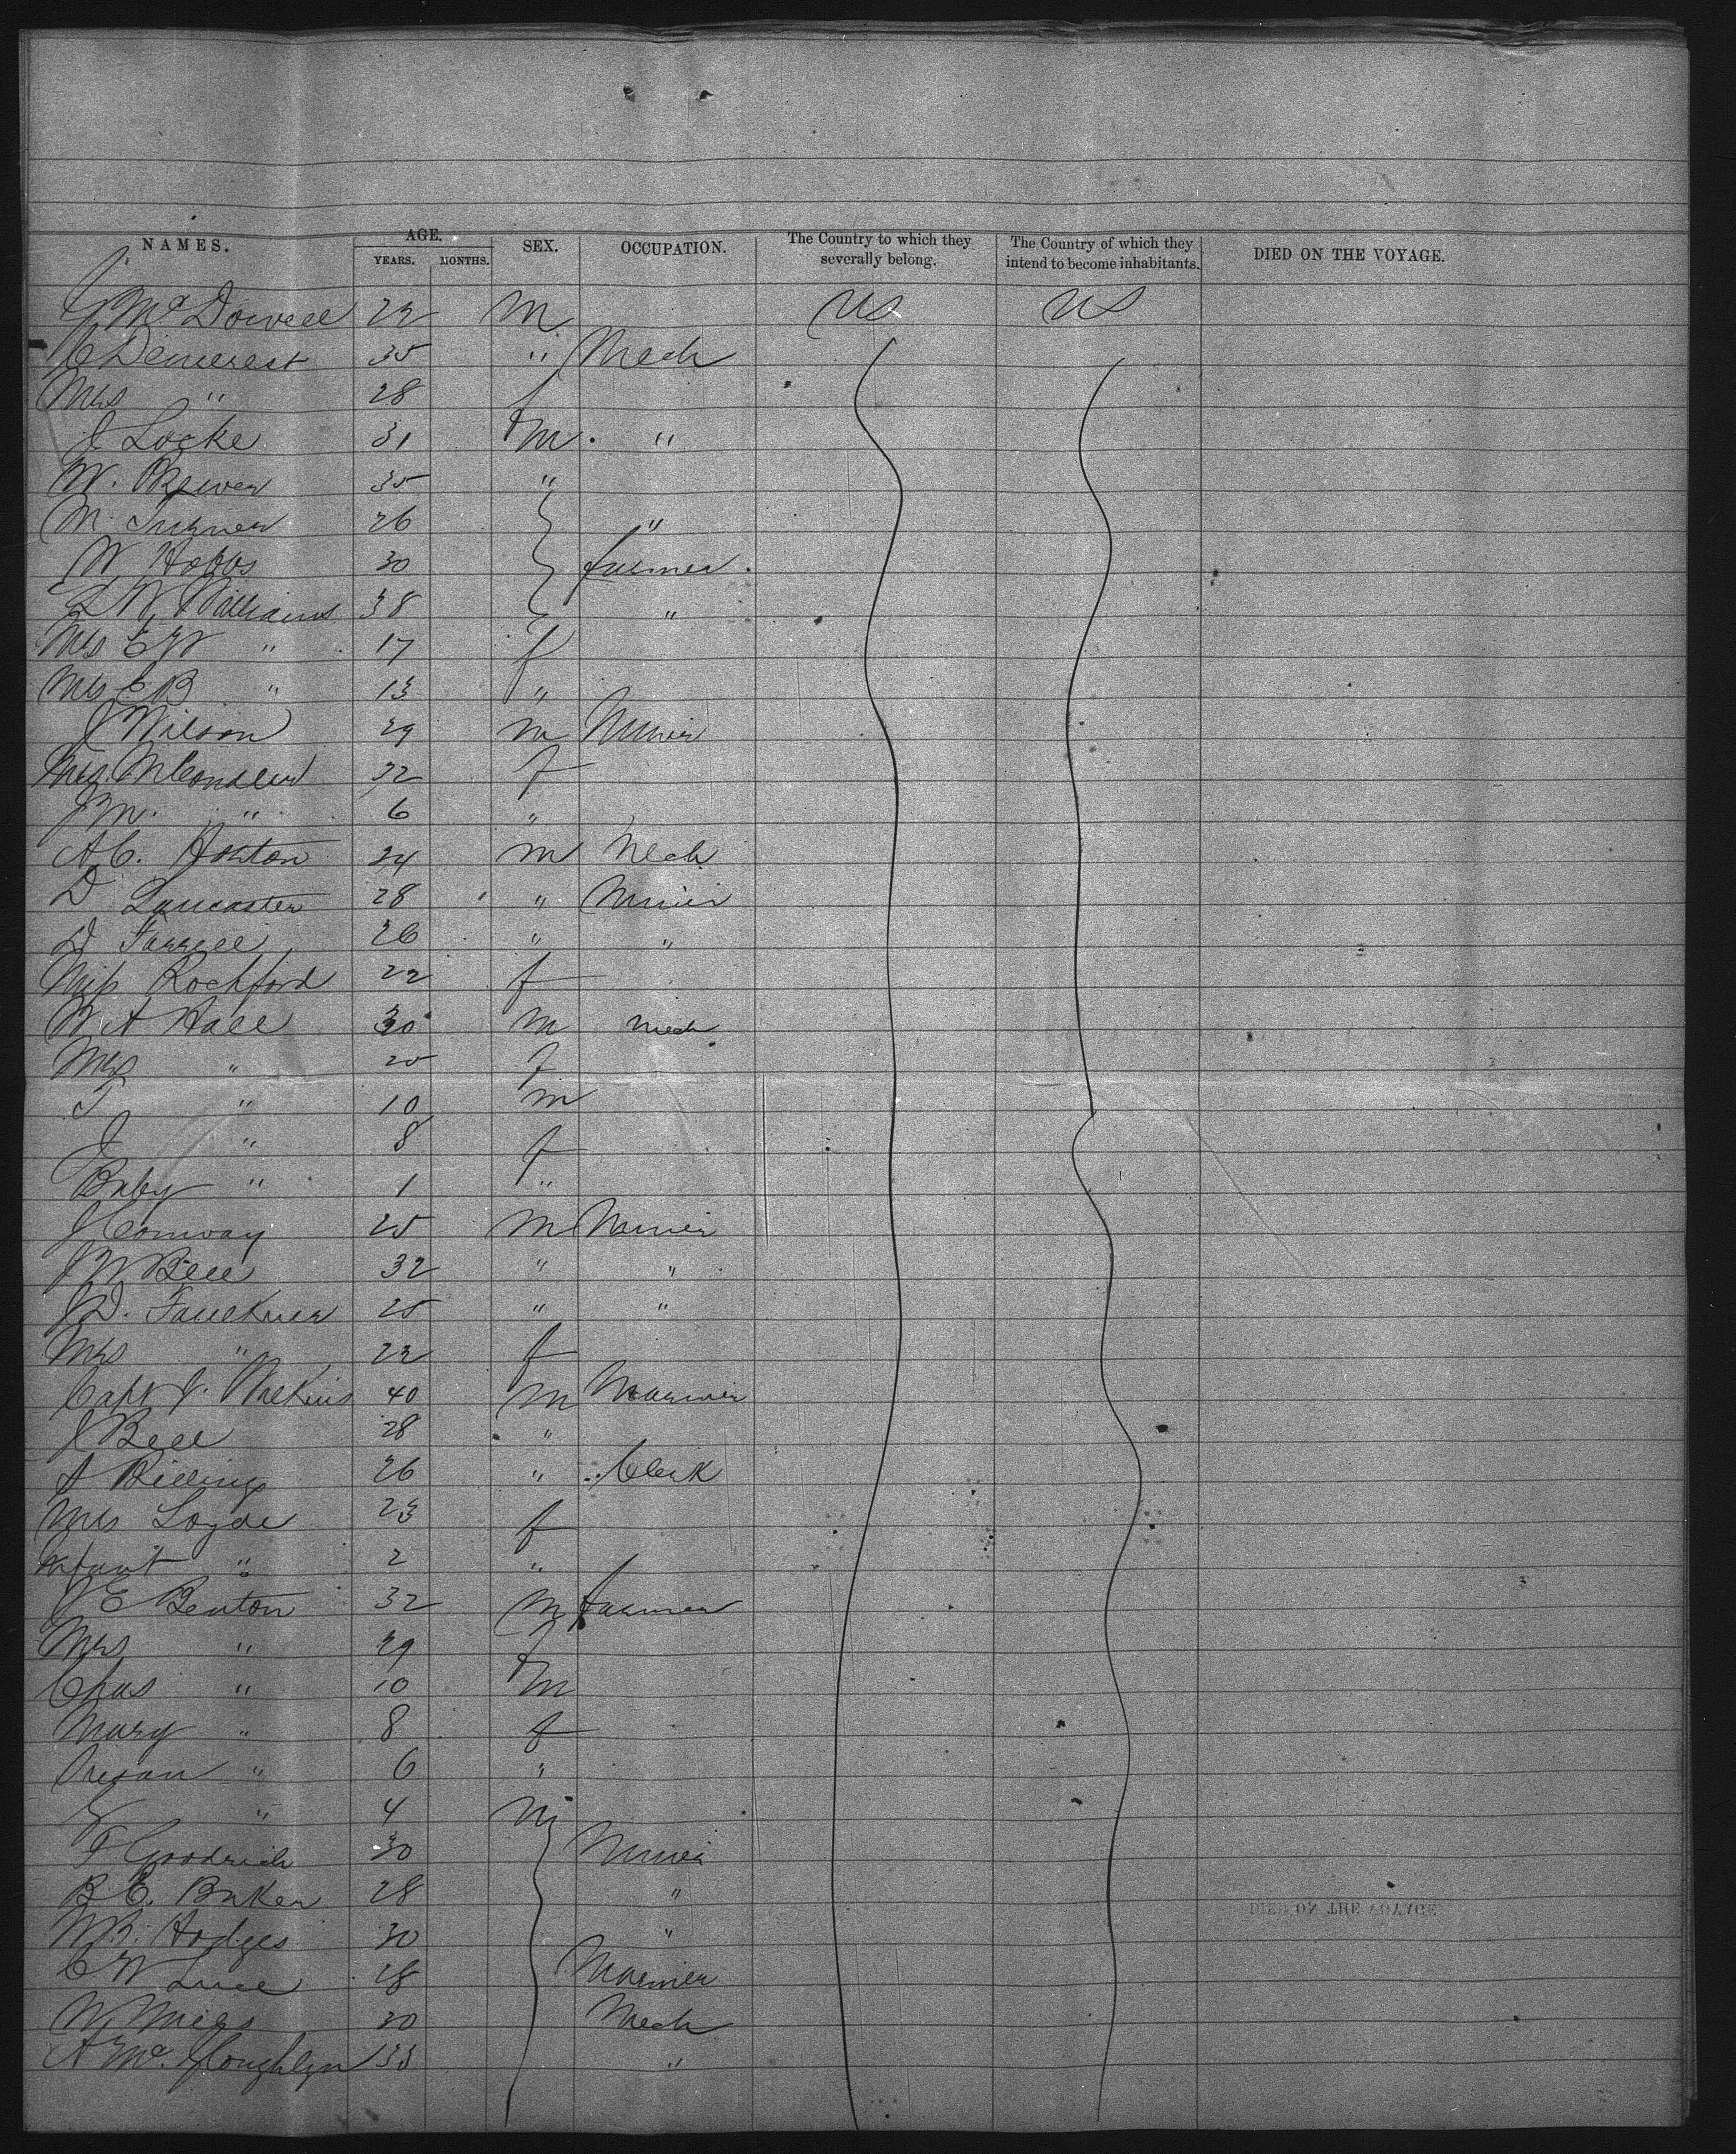 NAMES. AGE. SEX. OCCUPATION. The Country to which they severally belong. The Country of which they intend to become inhabitants. DIED ON THE VOYAGE.
YEARS. MONTHS.
J McDowell 22 M US US
C Demerest 35 " Mech
Mrs " 28 f
J Locke 31 M "
W. Brewer 35 "
M. Turner 26 "
W Hobbs 30 farmer
L W Williams 38 "
Mrs E W " 17 f
Mrs E B " 13 "
J Wilson 29 m Miner
Mrs. M 32 f
J M. " 6 "
A C. Horton 24 m Mech
D Lancaster 28 " Miner
D Farrell 26 " "
Miss Rochford 22 f
W A Hall 30 M Mech
Mrs " 25 f
T " 10 m
J " 8 f
Baby " 1 "
J Conway 25 M Miner
J W Bell 32 " "
J D. Faulkner 25 " "
Mrs " 22 f
Capt J. Wilkins 40 M Mariner
J Bell 28 "
A Billings 26 " Clerk
Mrs Loyde 23 f
Infant " 2 "
J E Benton 32 M farmer
Mrs " 29 f
Chas " 10 M
Mary " 8 f
" 6 "
" 4 M
F Goodrich 30 Miner
B. C. Baker 28 "
W B. Hodges 30 "
C W Luce 28 Mariner
W Miles 30 Mech
A Mc. 33 "